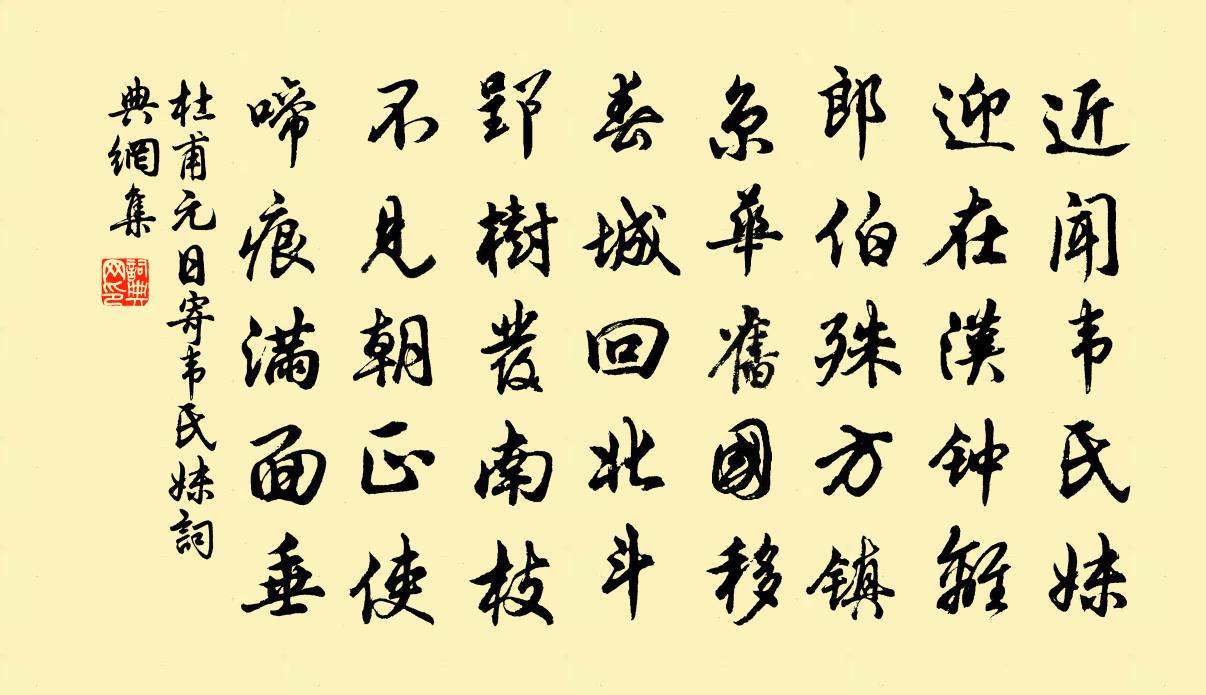 近闻韦氏妹
迎在漢钟離
郎伯殊方镇
京華舊國移
春城回北斗
郢樹發南枝
不見朝正使
啼痕满面垂
杜甫元日寄韦氏妹詞
典網集
詞典
网印